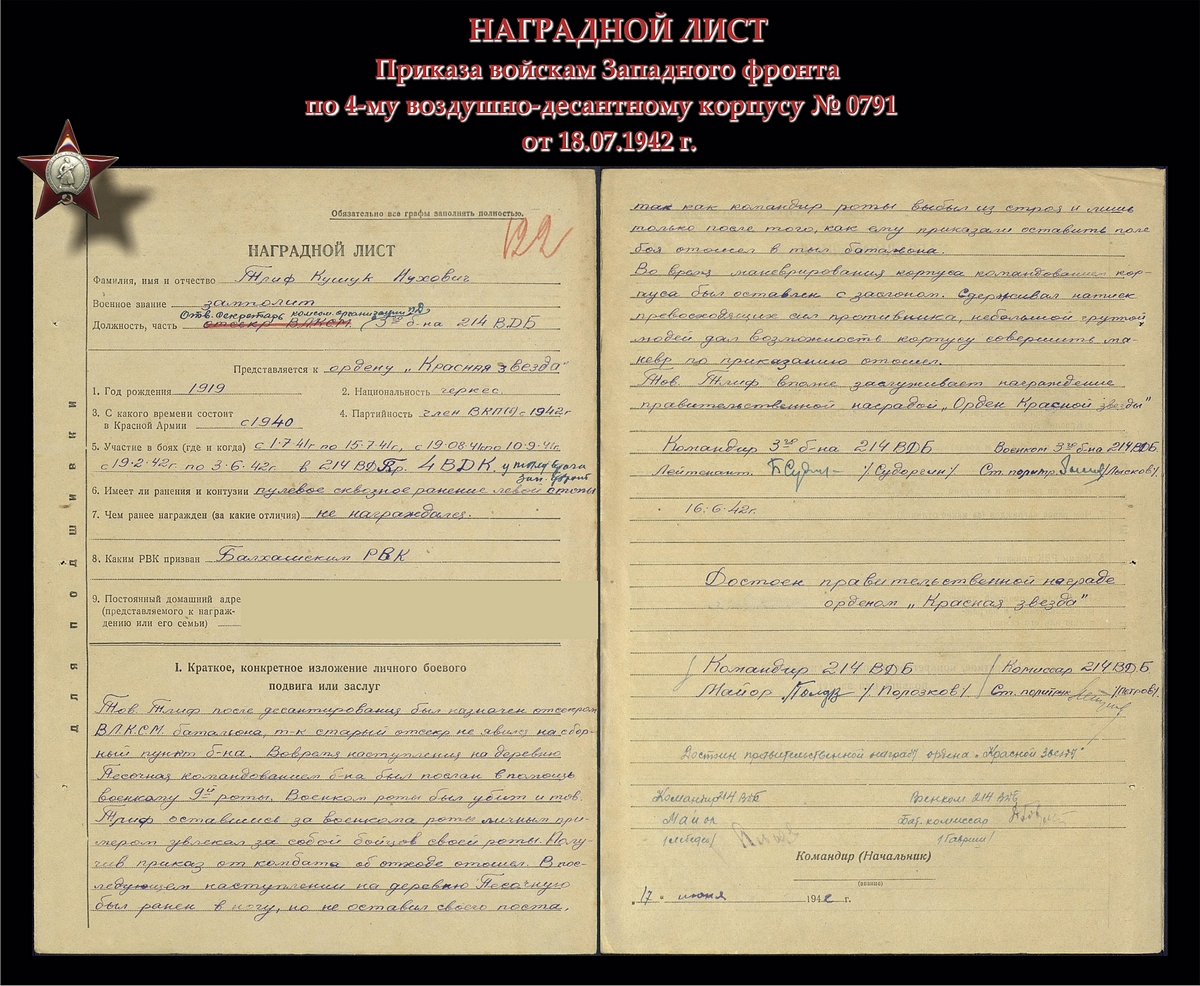 НАГРАДНОЙ ЛИСТ
Приказа войскам Западного фронта
по 4-му воздушно-десантному корпусу № 0791
от 18.07.1942 г.
Обязательно все графы заполнять полностью.
122
НАГРАДНОЙ ЛИСТ
Фамилия, имя и отчество Тлиф Кушук Нухович
Военное звание замполит
Отв. секретарь комсом. организации
Должность, часть отсекр ВЛКСМ (3го б-на 214 ВДБ
Представляется к ордену „Красная звезда"
1. Год рождения 1919 2. Национальность черкес
3. С какого времени состоит в Красной Армии с 1940 4. Партийность член ВКП(б) с 1942г
5. Участие в боях (где и когда) с 1.7.41г по 15.7.41г., с 19.08.41г по 10.9.41г.
с 19.2.42г. по 3.6.42г. в 214 ВДБр. 4 ВДК у тылу врага
зап. фронт
6. Имеет ли ранения и контузии пулевое сквозное ранение левой стопы
7. Чем ранее награжден (за какие отличия) не награждался.
8. Каким РВК призван Балхашским РВК
9. Постоянный домашний адре
(представляемого к награж-
дению или его семьи)
ДЛЯ ПОДШИВКИ
I. Краткое, конкретное изложение личного боевого
подвига или заслуг
Тов. Тлиф после десантирования был назначен отсекром
ВЛКСМ батальона, т-к старый отсекр не явился на сбор-
ный пункт б-на. Вовремя наступления на деревню
Песочная командованием б-на был послан в помощь
военкому 9й роты. Военком роты был убит и тов.
Тлиф оставшись за военкома роты личным при-
мером увлекал за собой бойцов своей роты. Полу-
чив приказ от комбата об отходе отошел. В пос-
ледующем наступлении на деревню Песочную
был ранен в ногу, но не оставил своего поста,
так как командир роты выбыл из строя и лишь
только после того, как ему приказали оставить поле
боя отошел в тыл батальона.
Во время маневрирования корпуса командованием кор-
пуса был оставлен с заслоном. Сдерживал натиск
превосходящих сил противника, небольшой группой
людей дал возможность корпусу совершить ма-
невр по приказанию отошел.
Тов. Тлиф вполне заслуживает награждение
правительственной наградой „Орден Красной звезды"
Командир 3го б-на 214 ВДБ Военком 3го б-на 214 ВДБ.
Лейтенант. /Судоргин/ Ст. политр. /Лысков/
16.6.42г.
Достоен правительственной награде
орденом „Красная звезда"
Командир 214 ВДБ Комиссар 214 ВДБ
Майор /Полозков/ Ст. политрук /Петров/
Достоин правительственной награды ордена „Красной звезды"
Командир 214 ВДБ Военком 214 ВДБ
Майор Бат. комиссар
Командир (Начальник)
(звание)
„17" июня 1942 г.